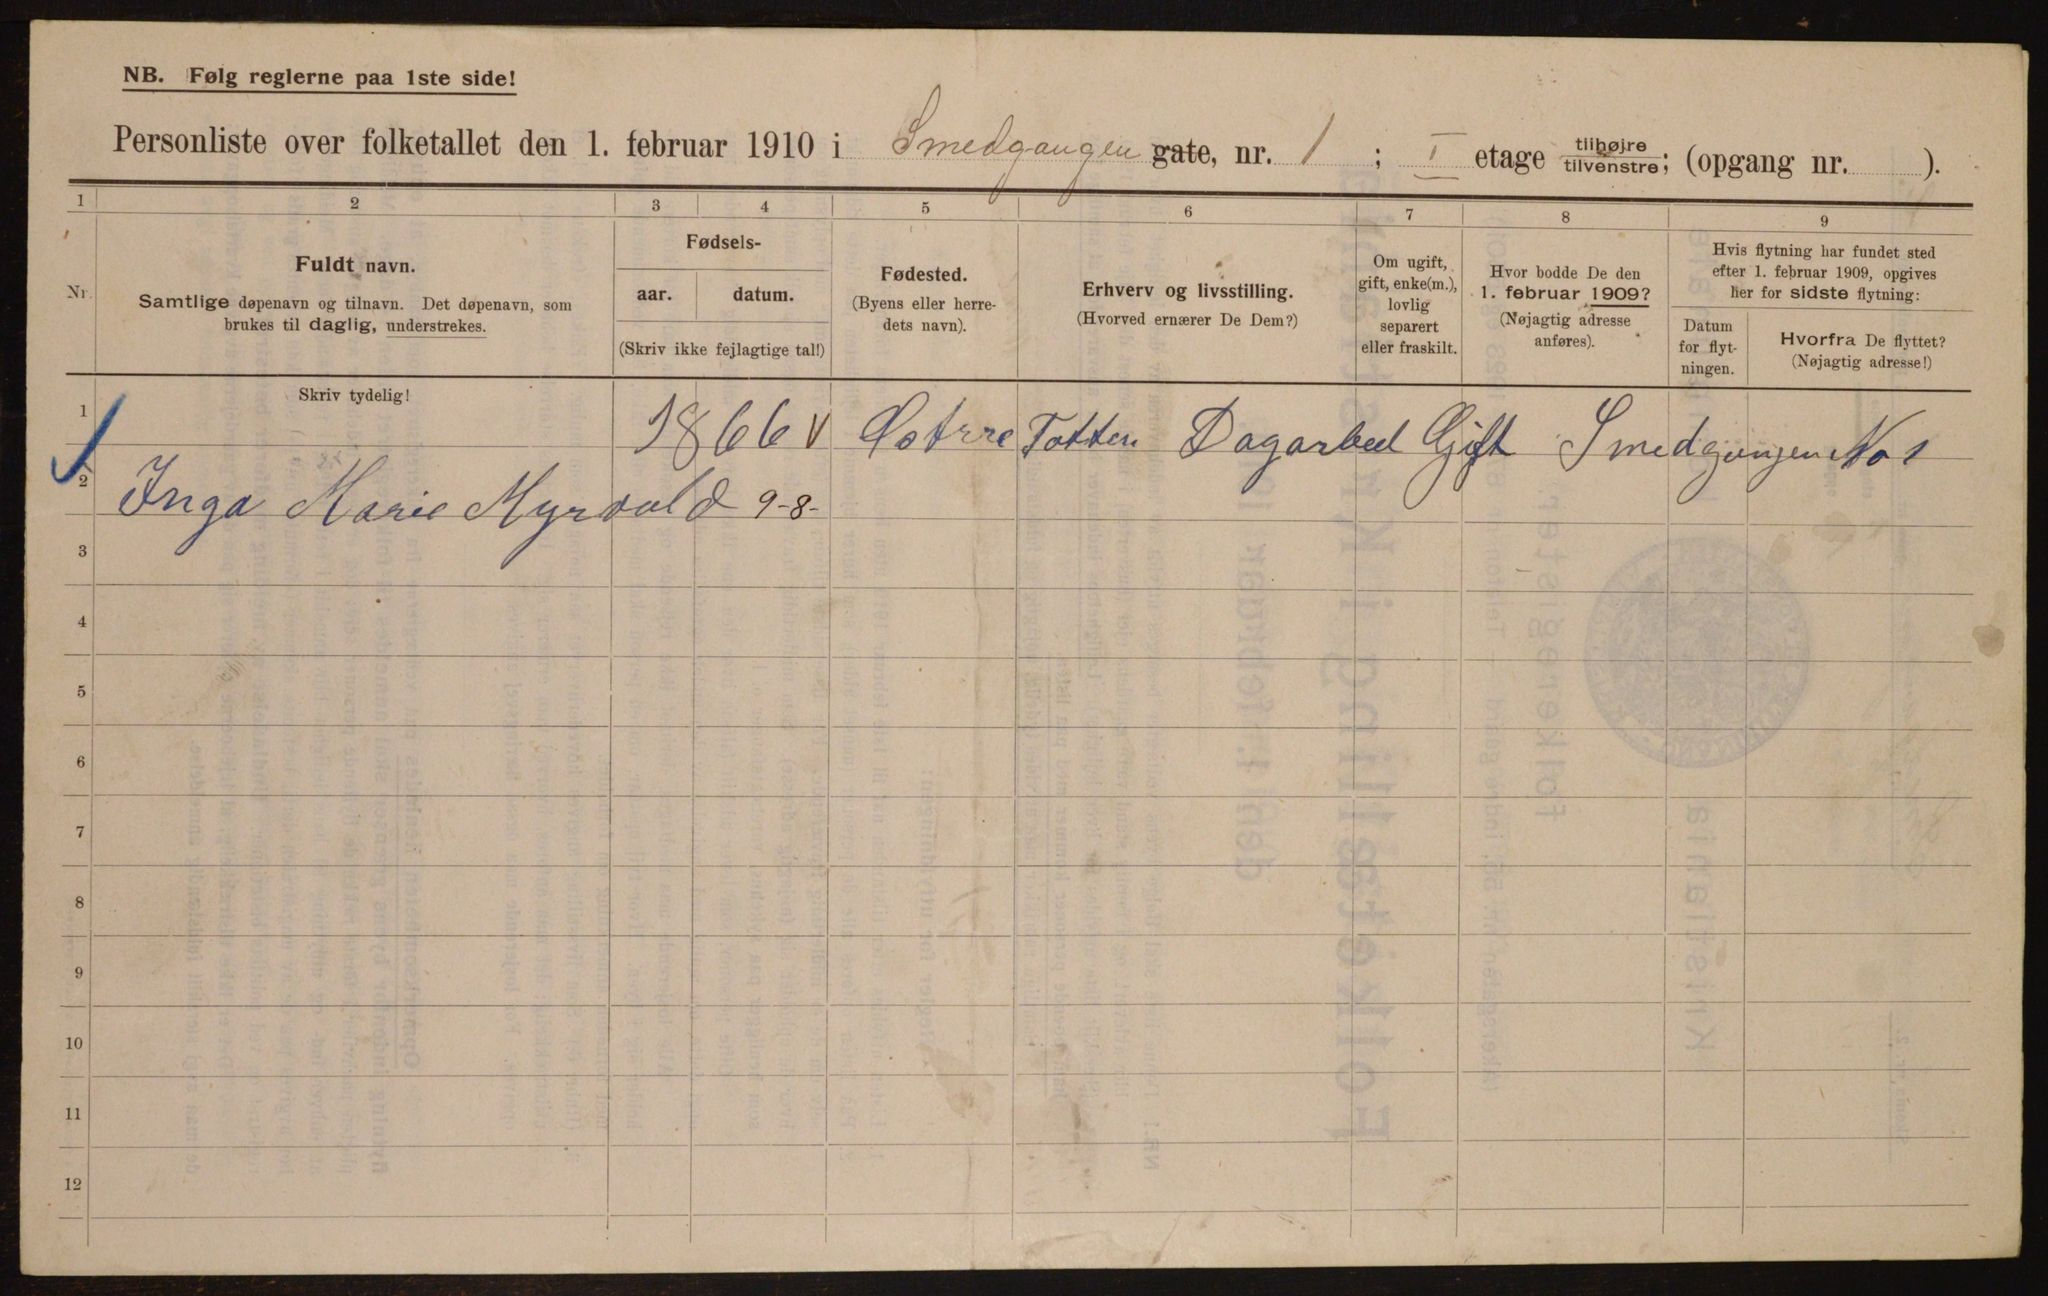 NB. Følg reglerne paa 1ste side!
Personliste over folketallet den 1. februar 1910 i Smedgangen gate, nr. 1 ; I etage tilhøjre/tilvenstre; (opgang nr. ).
1 2 3 4 5 6 7 8 9
Nr.
Fuldt navn.
Samtlige døpenavn og tilnavn. Det døpenavn, som
brukes til daglig, understrekes.
Fødsels-
aar. datum.
(Skriv ikke fejlagtige tal!)
Fødested.
(Byens eller herre-
dets navn).
Erhverv og livsstilling.
(Hvorved ernærer De Dem?)
Om ugift,
gift, enke(m.),
lovlig
separert
eller fraskilt.
Hvor bodde De den
1. februar 1909?
(Nøjagtig adresse
anføres).
Hvis flytning har fundet sted
efter 1. februar 1909, opgives
her for sidste flytning:
Datum
for flyt-
ningen.
Hvorfra De flyttet?
(Nøjagtig adresse!)
Skriv tydelig!
1 1866 V Østrre Totten Dagarbed Gift Smedgangen No 1
2 Inga Marie Myrvold 9-8-
3
4
5
6
7
8
9
10
11
12